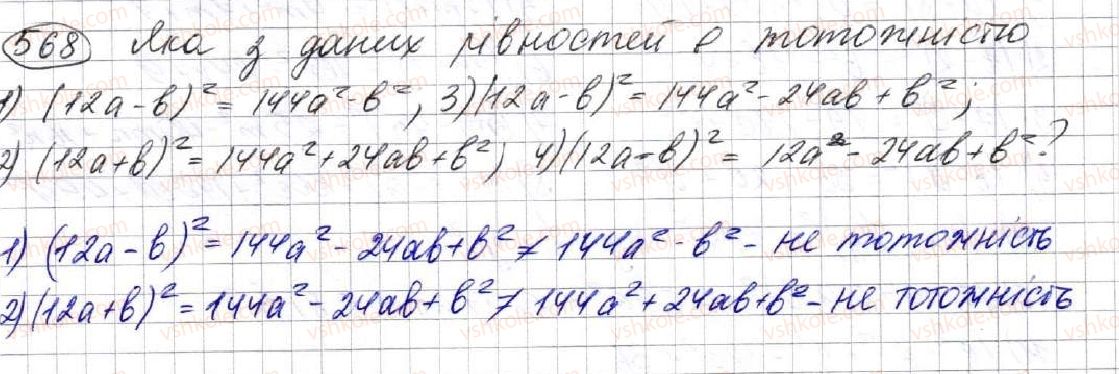 568 Яка з даних рівностей є тотожністю
1) (12a-b)² = 144a²-b²; 3) (12a-b)² = 144a²-24ab+b²;
2) (12a+b)² = 144a²+24ab+b²; 4) (12a-b)² = 12a²-24ab+b²?
1) (12a-b)² = 144a²-24ab+b² ≠ 144a²-b² - не тотожність
2) (12a+b)² = 144a²-24ab+b² ≠ 144a²+24ab+b² - не тотожність